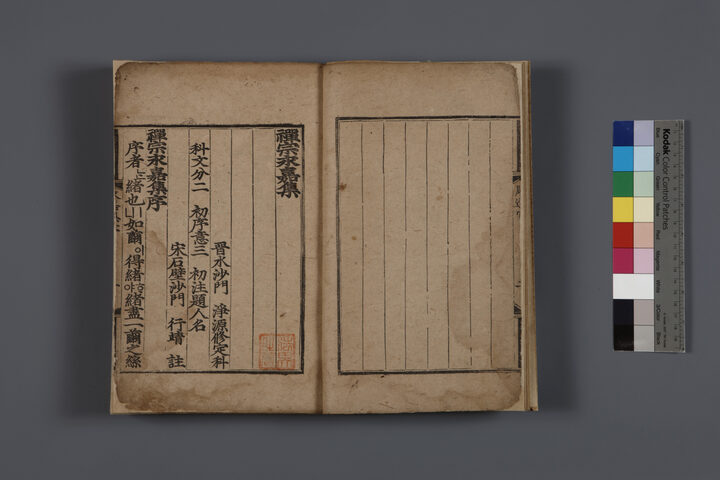 禪宗永嘉集
晋水沙門 淨源修定科
科文分二 初序意三 初注題人名
宋石壁沙門 行靖 註
禪宗永嘉集序
序者緖也如繭得緖緖盡一繭之絲
Kodak
Color Control Patches
Blue
Cyan
Green
Yellow
Red
Magenta
White
3/Color
Black